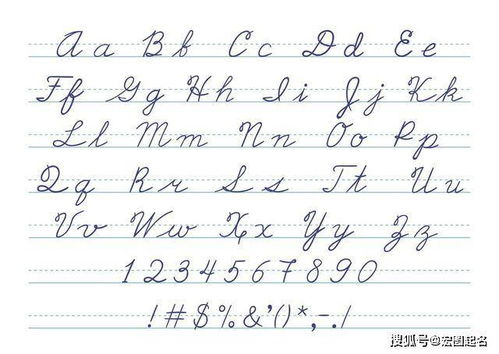 A a B b C c D d E e
F f G g H h I i J j K k
L l M m N n O o P p
Q q R r S s T t U u
V v W w X x Y y Z z
1 2 3 4 5 6 7 8 9 0
! # $ % & ' ( ) * , - . /
搜狐号@宏图起名